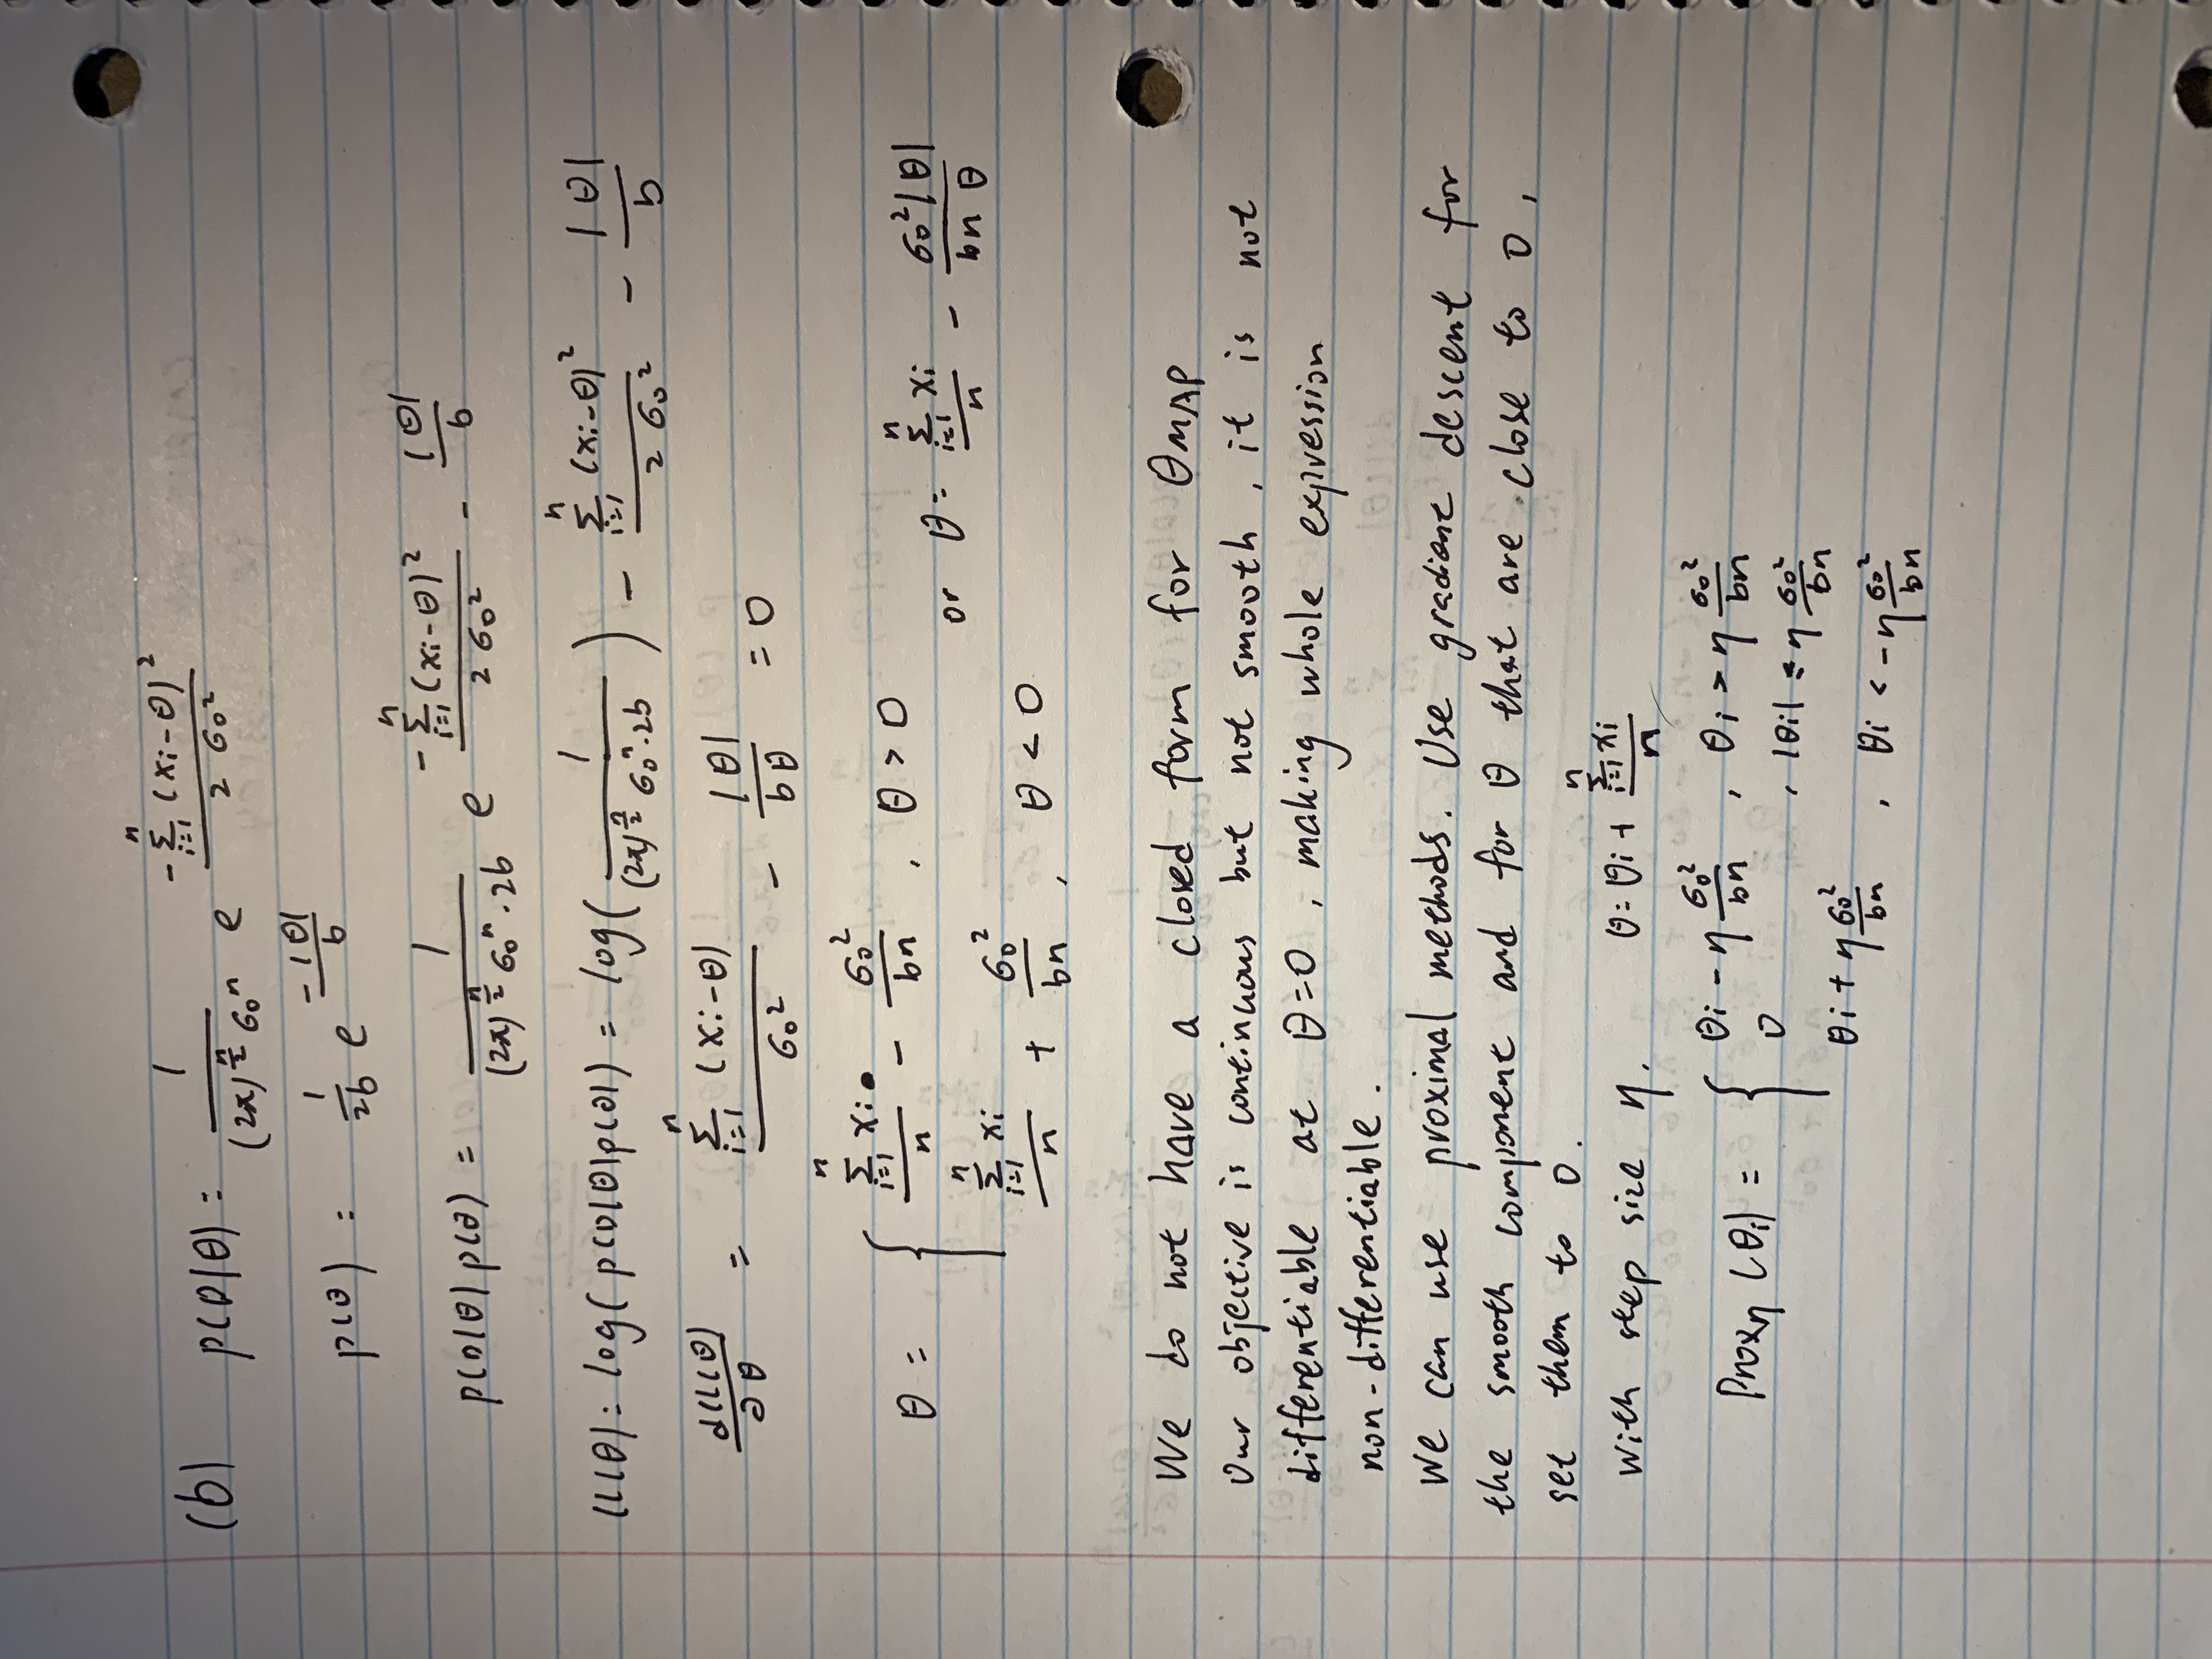 (b) p(D|θ) = \frac{1}{(2π)^{\frac{n}{2}} σ_0^n} e^{\frac{-\sum_{i=1}^{n} (x_i-θ)^2}{2σ_0^2}}
p(θ) = \frac{1}{2b} e^{\frac{-|θ|}{b}}
p(D|θ) p(θ) = \frac{1}{(2π)^{\frac{n}{2}} σ_0^n · 2b} e^{\frac{-\sum_{i=1}^{n} (x_i-θ)^2}{2σ_0^2} - \frac{|θ|}{b}}
ll(θ) = log(p(D|θ)p(θ)) = log(\frac{1}{(2π)^{\frac{n}{2}} σ_0^n · 2b}) - \frac{\sum_{i=1}^{n} (x_i-θ)^2}{2σ_0^2} - \frac{|θ|}{b}
\frac{∂ll(θ)}{∂θ} = \frac{\sum_{i=1}^{n} (x_i-θ)}{σ_0^2} - \frac{|θ|}{bθ} = 0
θ = { \frac{\sum_{i=1}^{n} x_i}{n} - \frac{σ_0^2}{bn}, θ > 0
\frac{\sum_{i=1}^{n} x_i}{n} + \frac{σ_0^2}{bn}, θ < 0
or θ = \frac{\sum_{i=1}^{n} x_i}{n} - \frac{σ_0^2|θ|}{bn θ}
We do not have a closed form for θ_{MAP}
Our objective is continuous but not smooth, it is not
differentiable at θ=0, making whole expression
non-differentiable.
We can use proximal methods. Use gradient descent for
the smooth component and for θ that are close to 0,
set them to 0.
With step size η. θ = θ_i + \frac{\sum_{i=1}^{n} x_i}{n}
Prox_η (θ_i) = { θ_i - η\frac{σ_0^2}{bn}, θ_i > η\frac{σ_0^2}{bn}
0, |θ_i| ≤ η\frac{σ_0^2}{bn}
θ_i + η\frac{σ_0^2}{bn}, θ_i < -η\frac{σ_0^2}{bn}